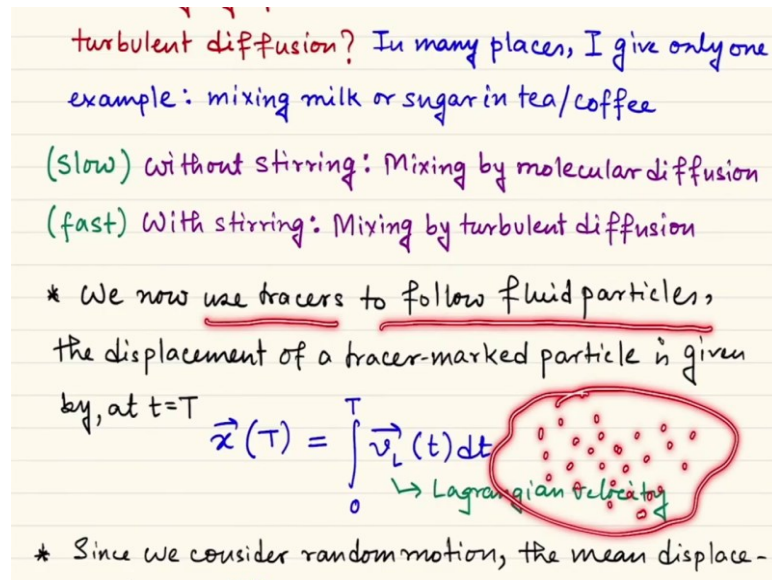 turbulent diffusion? In many places, I give only one
example: mixing milk or sugar in tea/coffee
(slow) without stirring: Mixing by molecular diffusion
(fast) With stirring: Mixing by turbulent diffusion
* We now use tracers to follow fluid particles,
the displacement of a tracer-marked particle is given
by, at t=T
x⃗(T) = ∫₀ᵀ v⃗_L(t)dt
↳ Lagrangian velocity
* Since we consider random motion, the mean displace-